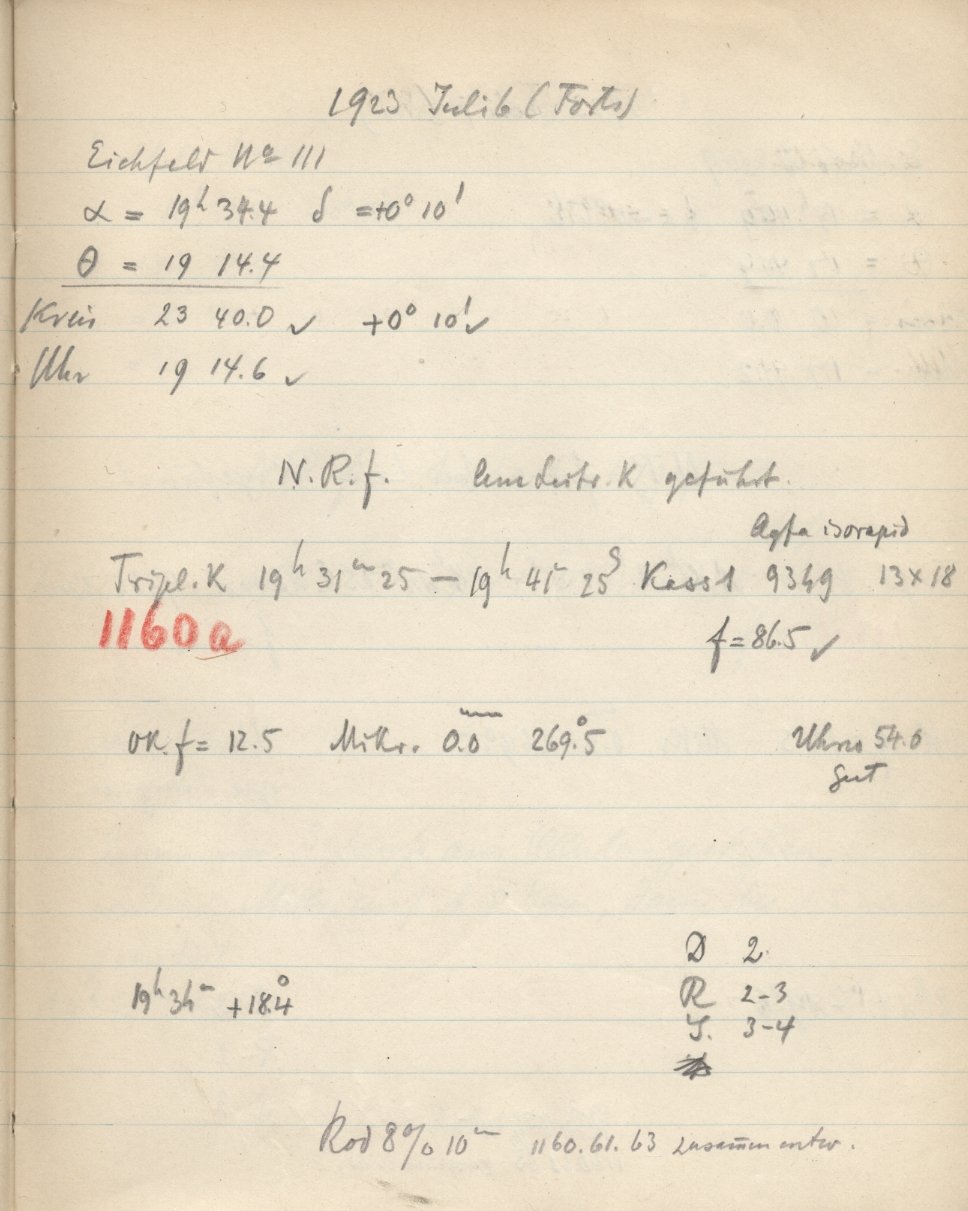 1923 Juli 6 (Forts)
Eichfeld No 111
α = 19h 34.4 δ = +0° 10'
θ = 19 14.4
Kreis 23 40.0 ✓ +0° 10' ✓
Uhr 19 14.6 ✓
N.R.f. Leitr. K geführt.
Agfa isorapid
Tripl. K 19h 31m 25 – 19h 41m 25s Kass 1 9349 13×18
1160a
f = 86.5 ✓
ok. f = 12.5 Mikr. 0.0mm 269.°5 Uhrzo 54.0
gut
D 2.
19h 34m +18.°4
R 2-3
S. 3-4
Rod 8% 10m 1160.61.63 zusammen entw.